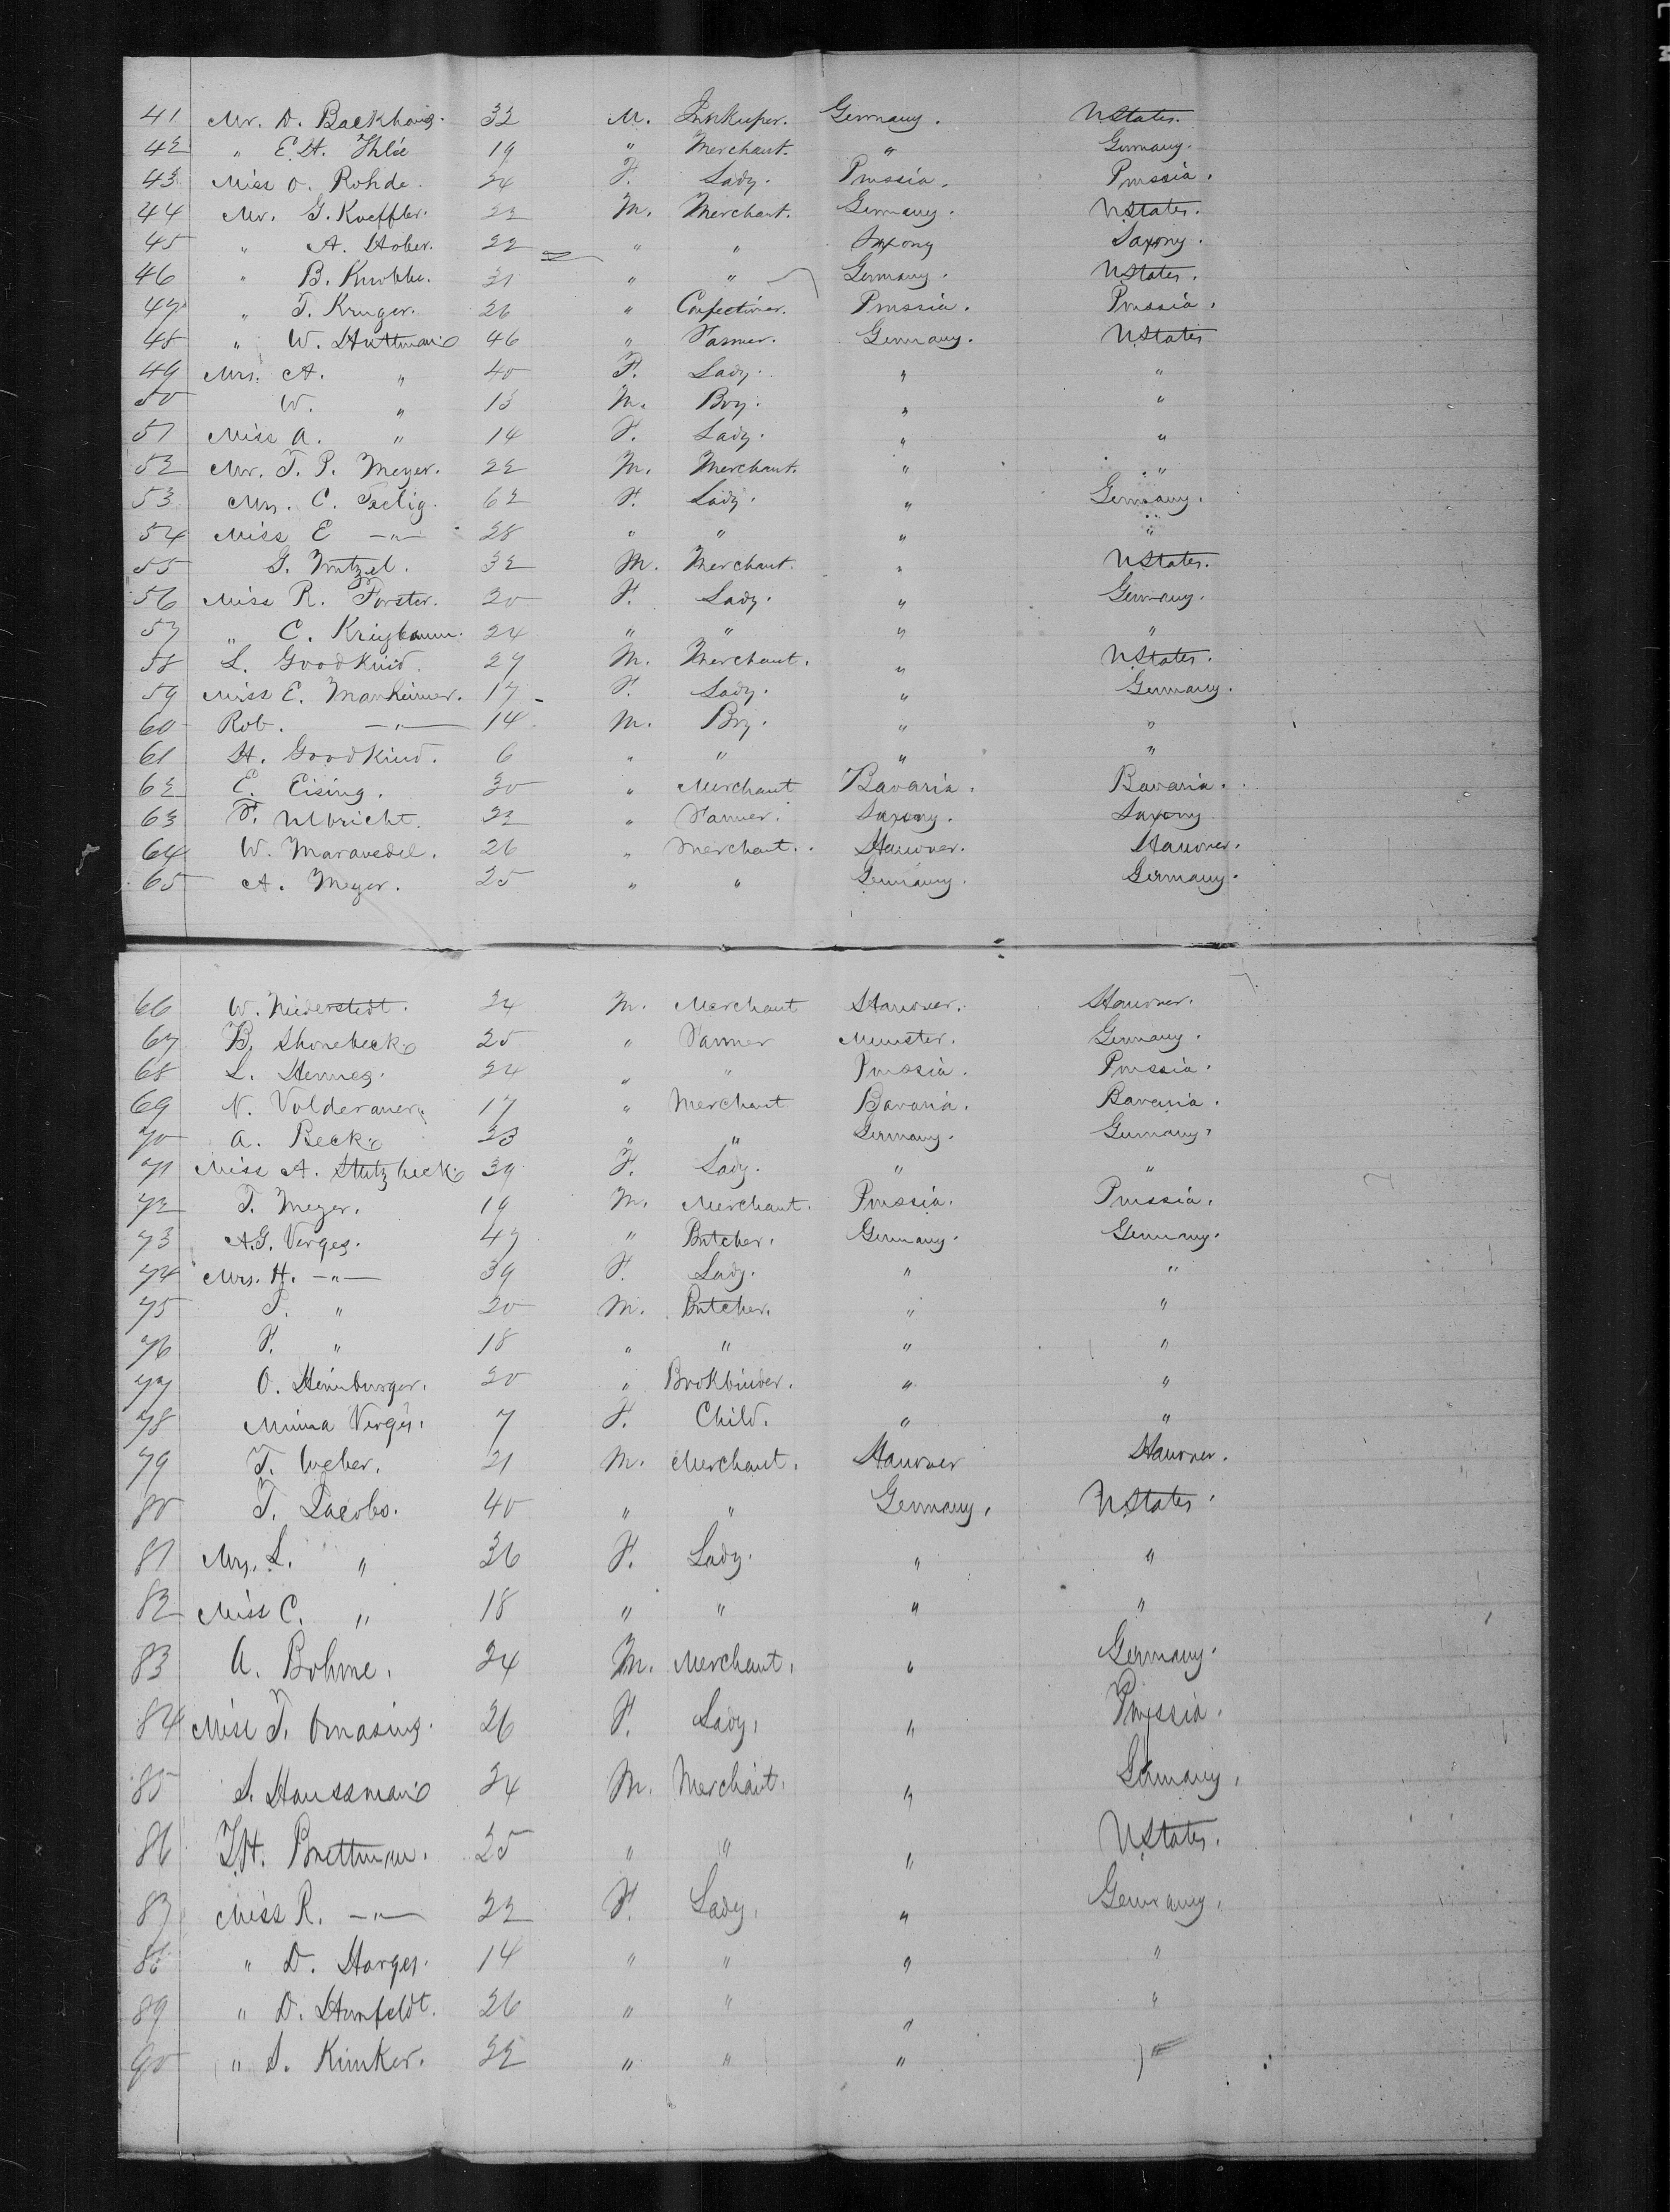 41 Mr. D. Backhaus. 32 M. Innkeeper. Germany. UStates.
42 " E.H. Thlée 19 " Merchant. " Germany.
43 Miss O. Rohde. 24 F. Lady. Prussia. Prussia.
44 Mr. G. Koeffler. 22 M. Merchant. Germany. UStates.
45 " A. Hober. 22 " " Saxony Saxony.
46 " B. 21 " " Germany. UStates.
47 " T. Kruger. 26 " Confectioner. Prussia. Prussia.
48 " W. Huttman 46 " Farmer. Germany. UStates
49 Mrs. A. " 40 F. Lady. " "
50 W. " 13 M. Boy. " "
51 Miss A. " 14 F. Lady. " "
52 Mr. T. P. Meyer. 22 M. Merchant. " "
53 Mrs. C. Seelig. 62 F. Lady. " Germany.
54 Miss E —"— 28 " " " "
55 G. 32 M. Merchant. " UStates.
56 Miss R. Forster. 20 F. Lady. " Germany.
57 " C. Kriegbaum. 24 " " " "
58 L. Goodkind. 27 M. Merchant. " UStates.
59 Miss E. Manheimer. 17 F. Lady. " Germany.
60 Rob. —"— 14 M. Boy. " "
61 H. Goodkind. 6 " " " "
62 E. Eising. 30 " Merchant Bavaria. Bavaria.
63 F. Ulbricht. 22 " Farmer. Saxony. Saxony
64 W. Maravedel. 26 " Merchant. Hanover. Hanover.
65 A. Meyer. 25 " " Germany. Germany.
66 W. Niederstedt. 24 M. Merchant Hanover. Hanover.
67 B. Shonebeck 25 " Farmer Munster. Germany.
68 L. Hennes. 24 " " Prussia. Prussia.
69 N. Volderauer. 17 " Merchant Bavaria. Bavaria.
70 A. Beck 23 " " Germany. Germany.
71 Miss A. Stutzbeck 39 F. Lady. " "
72 T. Meyer. 19 M. Merchant. Prussia. Prussia.
73 A.G. Verges. 47 " Butcher. Germany. Germany.
74 Mrs. H. —"— 39 F. Lady. " "
75 T. " 20 M. Butcher. " "
76 F. " 18 " " " "
77 O. Heimburger. 20 " Bookbinder. " "
78 Minna Verges. 7 F. Child. " "
79 T. Weber. 21 M. Merchant. Hanover Hanover.
80 T. Jacobs. 40 " " Germany. UStates.
81 Mrs. L. " 36 F. Lady. " "
82 Miss C. " 18 " " " "
83 A. Bohme. 24 M. Merchant. " Germany.
84 Miss T. Omasius. 26 F. Lady. " Prussia.
85 S. Haussman 24 M. Merchant. " Germany.
86 Brettman. 25 " " " UStates.
87 Miss R. —"— 22 F. Lady. " Germany.
88 " D. Harges. 14 " " " "
89 " D. 26 " " " "
90 " S. Kimker. 22 " " " "